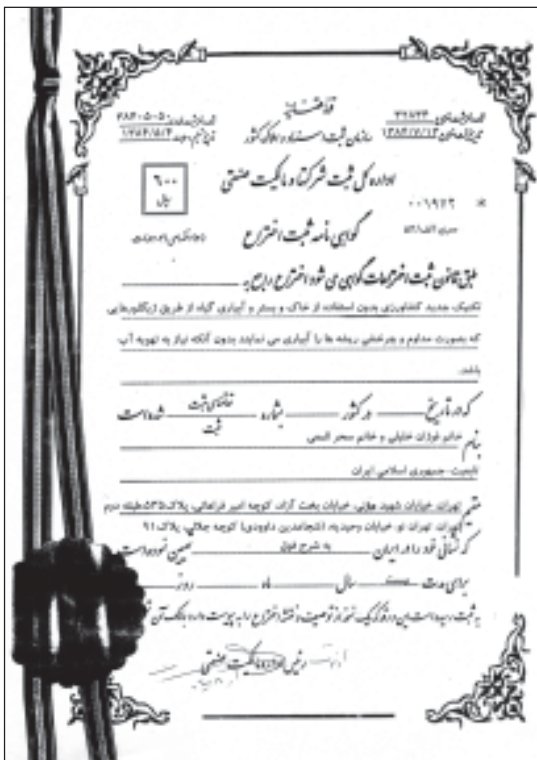 قوه قضائیه
شماره ثبت اختراع ۳۲۸۲۳
سازمان ثبت اسناد و املاک کشور
اداره کل ثبت شرکتها و مالکیت صنعتی
۶۰۰
ریال
۰۰۱۹۲۲ *
سری الف/۸۲
گواهی نامه ثبت اختراع
طبق قانون ثبت اختراعات گواهی می شود اختراع راجع به
تکنیک جدید کشاورزی بدون استفاده از خاک و بستر و آبیاری گیاه از طریق زیگلورهایی
که بصورت مداوم و چرخشی ریشه ها را آبیاری می نمایند بدون آنکه نیاز به تهویه آب
باشد.
که در تاریخ در کشور بشماره تقاضای ثبت شده است
ثبت
بنام خانم فوژان خلیلی و خانم سحر
تابعیت-جمهوری اسلامی ایران
مقیم تهران، خیابان شهید خیابان بخت آزاد، کوچه امیر فراهانی، پلاک۵۳۵طبقه دوم
تهران، تهران نو، خیابان وحیدیه، (شجاعدین داوودی) کوچه جلالی، پلاک ۹۱
که نشانی خود را در ایران به شرح فوق تعیین نموده است
برای مدت سال ماه روز
به ثبت رسیده است این ورقه که یک نمونه از توصیف و نقشه اختراع را به پیوست دارد بمالک آن
رئیس اداره مالکیت صنعتی